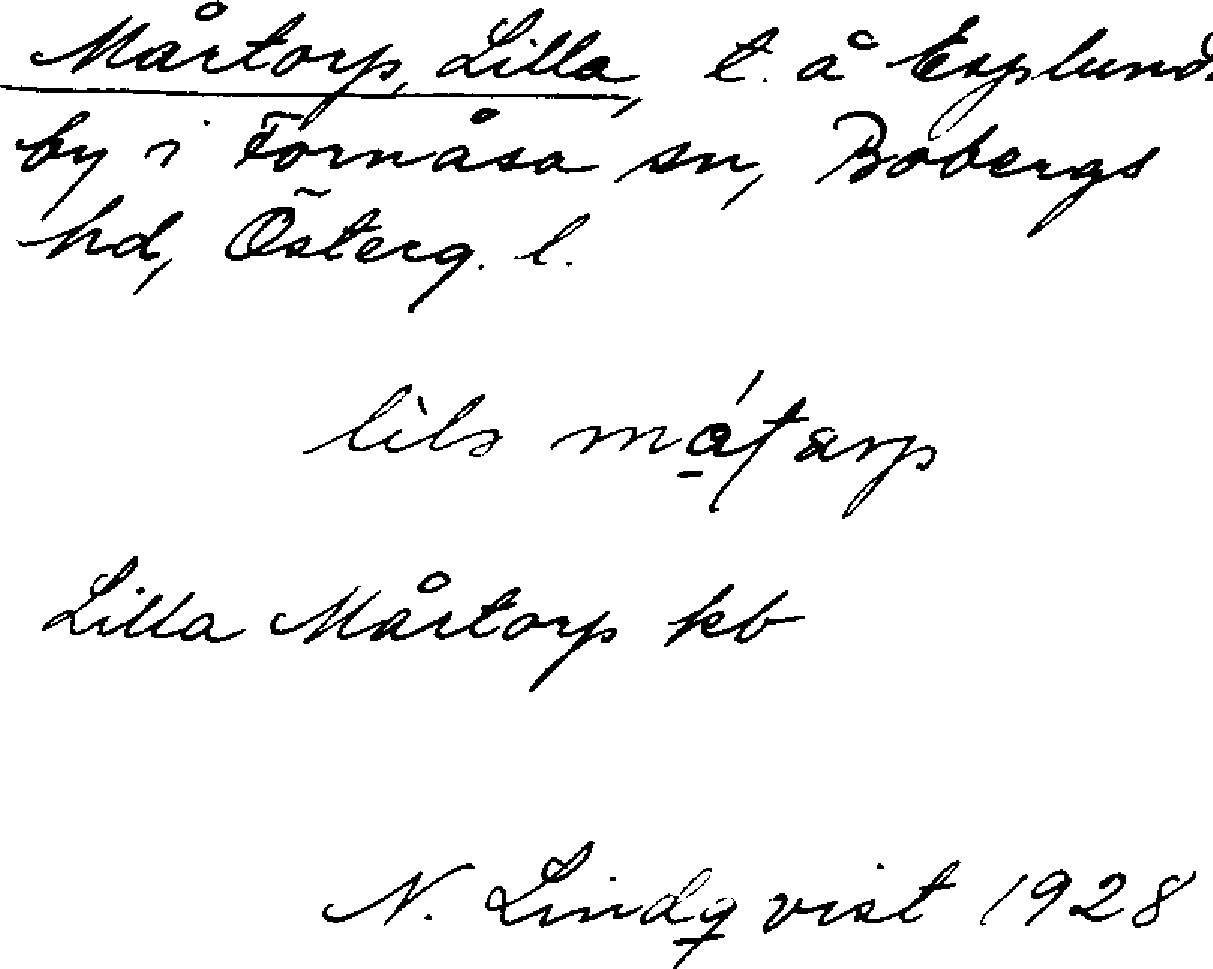 Mårtorp, Lilla, t. å Esplunda
by i Fornåsa sn, Bobergs
hd, Österg. l.
Lilla Mårtorp kb
N. Lindqvist 1928